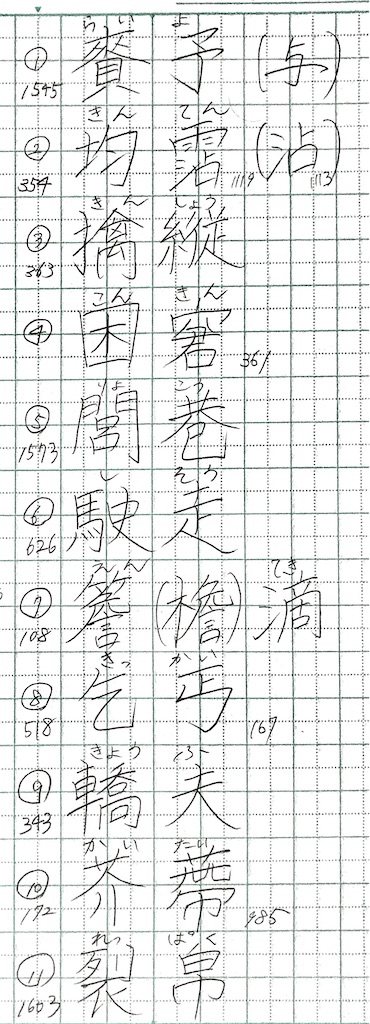 らい よ
① 賚 予 (与)
1545
きん てん
② 均 霑 1119 (沾) 1113
354
きん しょう
③ 擒 縦
363
こん きん
④ 困 窘 361
りょ こう
⑤ 閭 巷
1573
し そう
⑥ 駛 走
626
えん てき
⑦ 簷 (檐) 滴
108
きっ かい
⑧ 乞 丐 167
518
きょう ふ
⑨ 轎 夫
343
かい たい
⑩ 芥 蔕 985
172
れっ ぱく
⑪ 裂 帛
1603